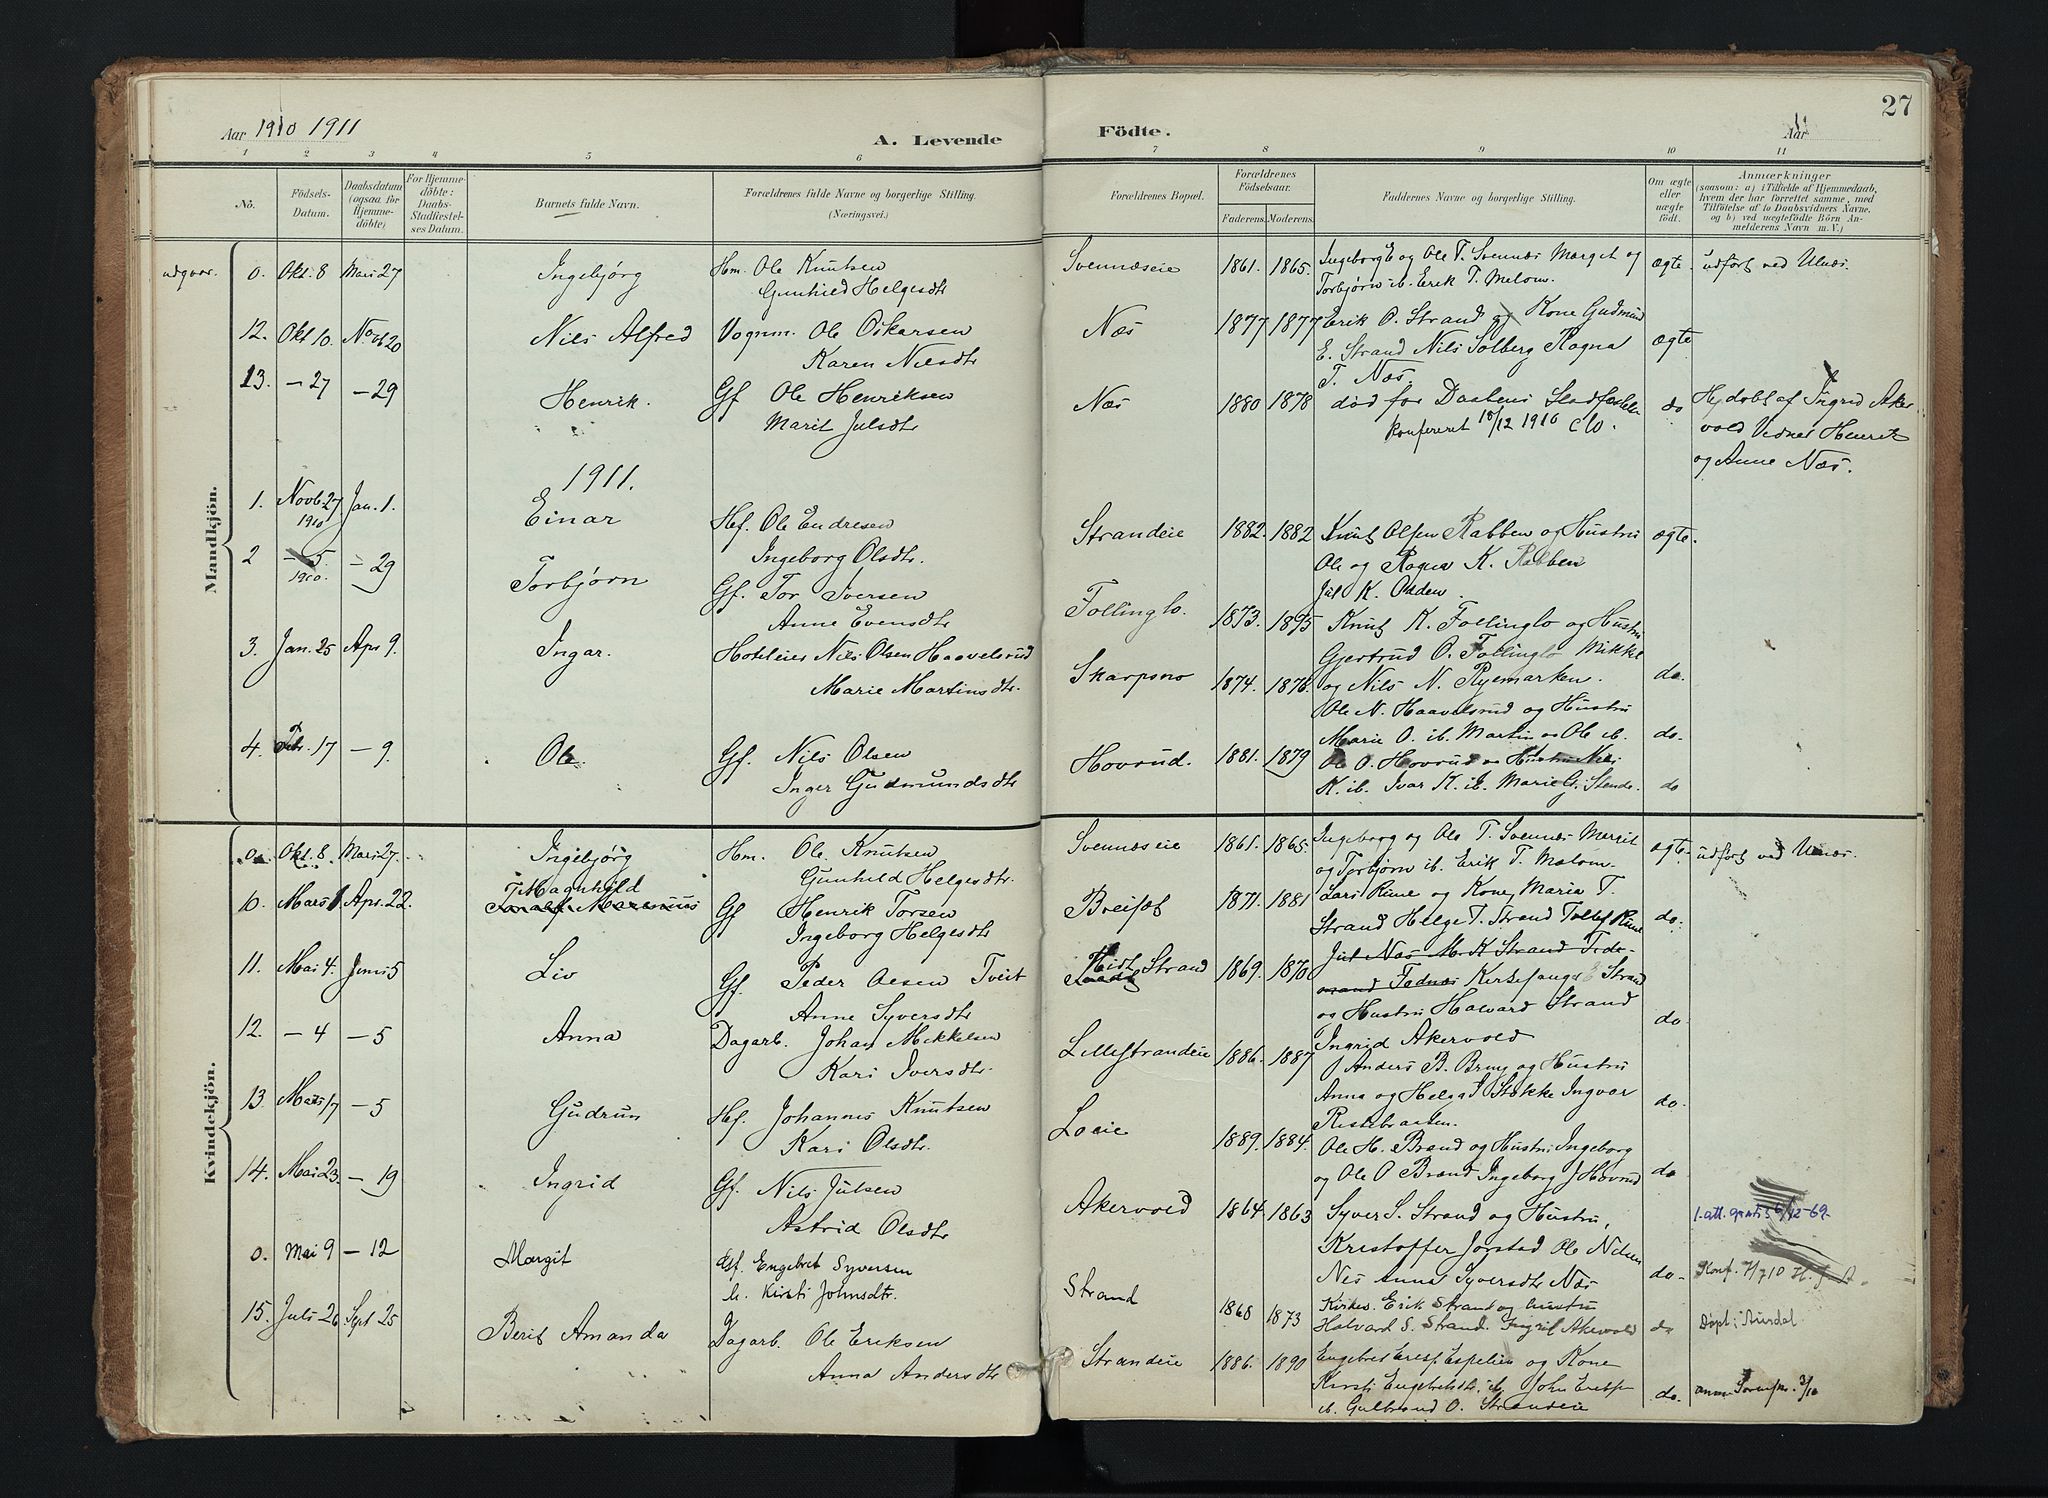 Aar 1910 1911
A. Levende
Födte.
Aar 11
27
1 2 3 4 5 6 7 8 9 10 11
No.
Födsels-Datum.
Daabsdatum (ogsaa for Hjemme-döbte)
For Hjemme-döbte: Daabs-Stadfæstel-ses Datum.
Barnets fulde Navn.
Forældrenes fulde Navne og borgerlige Stilling.
(Næringsvei.)
Forældrenes Bopæl.
Forældrenes Födselsaar.
Faderens. Moderens.
Faddernes Navne og borgerlige Stilling.
Om ægte eller uægte födt.
Anmærkninger
(saasom: a) i Tilfælde af Hjemmedaab,
hvem der har forrettet samme, med
Tilföielse af to Daabsvidners Navne.
og b) ved uægtefödte Börn An-
melderens Navn m. V.)
Mandkjön.
udgaar. 0. Okt. 8 Mars 27 Ingebjörg Hm. Ole Knutsen
Gunhild Helgesdtr
Svennæseie 1861. 1865. Ingeborg E og Ole T. Svennæs Marget og
Torbjörn ib. Erik T. Melom.
ægte. udfört ved Ulnæs.
12. Okt 10. Novb 20 Nils Alfred Vognm. Ole Oskarsen
Karen Nilsdtr
Næs 1877 1877 Erik O. Strand og Kone Gudmund
E. Strand Nils Solberg Ragna
T. Næs.
ægte.
13. — 27 — 29 Henrik. Gf Ole Henriksen
Marit Julsdtr
Næs 1880 1878 död før Daabens Stadfæstelse
konfereret 18/12 1910
do Hj. døbt af Ingrid Aker
vold Vidner Henrik
og Anne Næs.
1911.
1. Novb 27 1910 Jan. 1. Einar Hf. Ole Endresen
Ingeborg Olsdtr.
Strandeie 1882. 1882 Knut Olsen Rabben og Hustru
Ole og Ragna K. Rabben
Jul K. Odden.
ægte.
2 — 5 1910. — 29 Torbjørn Gf. Tor Iversen
Anne Evensdtr
Follinglo. 1873. 1875 Knut K. Follinglo og Hustru
Gjertrud O. Follinglo Mikkel
og Nils N. Ryemarken.
do.
3. Jan. 25 Apr 9. Ingar. Hoteleier Nils Olsen Haavelsrud
Marie Martinsdtr.
Skarpsno 1874. 1876. Ole N. Haavelsrud og Hustru
Marie O. ib. Martin og Ole ib.
do.
4. Febr. 17 — 9. Ole Gf. Nils Olsen
Inger Gudmundsdtr
Hovrud. 1881. 1879 Ole O. Hovrud og Hustru
K. ib. Ivar K. ib. Marie G. Stende.
do
Kvindekjön.
0. Okt. 8 Mars 27. Ingebjörg Hm. Ole Knutsen
Gunhild Helgesdtr.
Svennæseie 1861. 1865. Ingeborg og Ole T. Svennæs Margit
og Torbjörn ib. Erik T. Melom.
ægte. udfört ved Ulnæs.
10. Mars 1. Apr. 22. T. Magnhild
Gf Henrik Torsen
Ingeborg Helgesdtr
Breiset 1871. 1881 Lars Rime og Kone Maria T.
Strand Helge T. Strand Tollef Rime
do.
11. Mai 4. Juni 5 Liv Gf. Peder Olsen Tveit
Anne Syversdtr
Midt Strand 1869. 1870 Jul Næs M. K Strand
Fødnæs Kirkesanger E Strand
og Hustru Halvard Strand
Ingrid Akervold
do.
12. — 4 — 5 Anna Dagarb. Johan Mikkelsen
Kari Iversdtr.
Lillestrandeie 1886. 1887 Anders B. Bruy og Hustru
Anna og Helga J Stokke Ingvar
Ristebraaten.
do.
13. Mars 17 — 5 Gudrun Hf. Johannes Knutsen
Kari Olsdtr.
Loeie 1889. 1884. Ole H. Brand og Hustru Ingeborg
og Ole O Brand Ingeborg J Hovrud
do
14. Mai 23. — 19 Ingrid Gf. Nils Julsen
Astrid Olsdtr
Akervold 1864. 1863 Syver S. Strand og Hustru,
Kristoffer Jørstad Ole Nilsen
Nes Anna Syversdtr Næs
do. 1. att. gratis 6/12-69.
Konf. 7/7 10
0. Mai 9 — 12 Margit Gsf. Engebret Syversen
h. Kirsti Johnsdtr.
Strand 1868 1873 Kirkes. Erik Strand og hustru
Halvard S. Strand. Ingrid Akervold
do Døpt i Aurdal.
15. Juli 26 Sept 25 Berit Amanda Dagarb. Ole Eriksen
Anna Andersdtr
Strandeie 1886. 1890 Engebret Espelien og Kone
Kirsti Engebretsdtr. ib. John
ib. Gulbrand O. Strandeie
do. 3/10